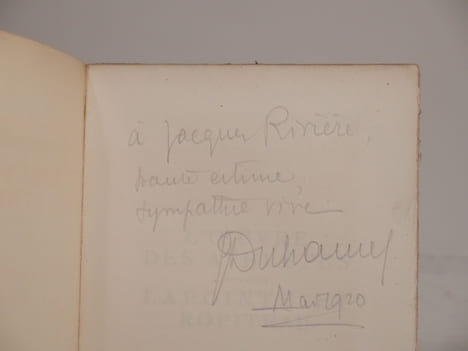 à Jacques Rivière,
haute estime,
sympathie vive
GDuhamel
Mars 1920
DES